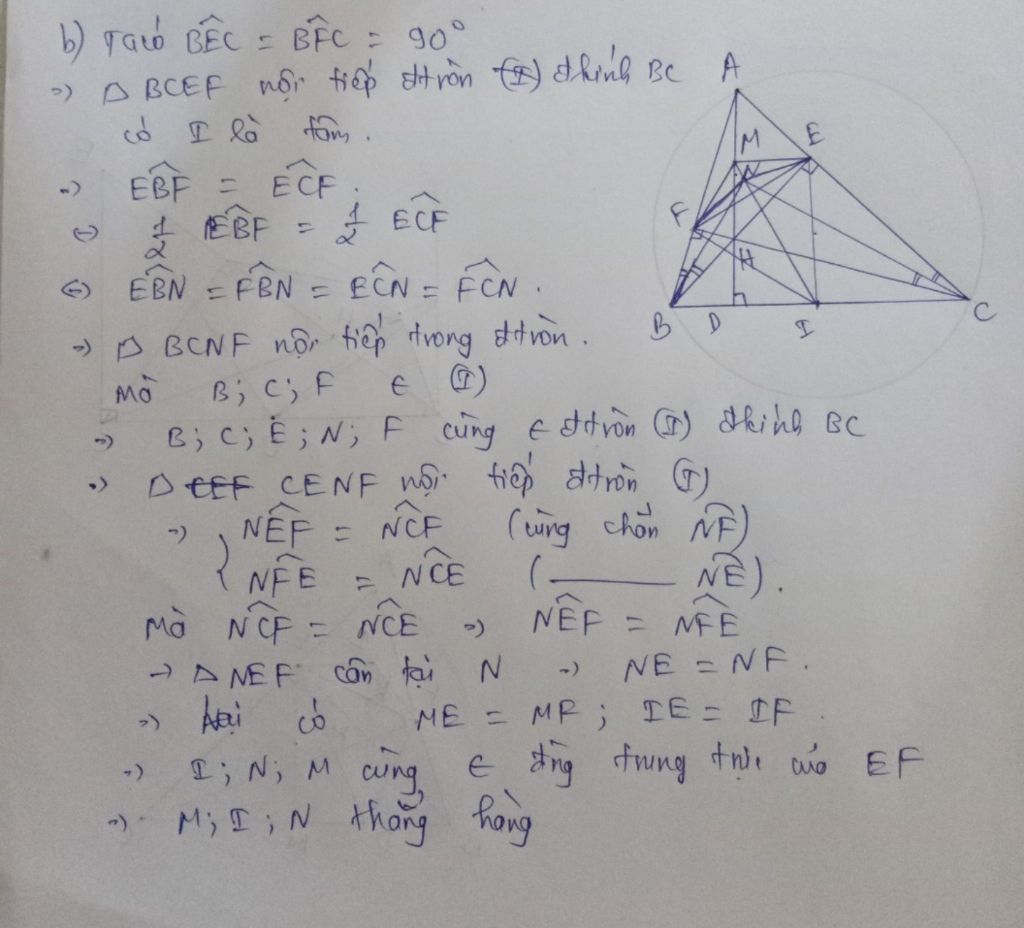 b) Ta có BÊC = BF̂C = 90°
=> △ BCEF nội tiếp đtròn (I) đkính BC
có I là tâm.
=> EB̂F = EĈF.
<=> 1/2 EB̂F = 1/2 EĈF
<=> EB̂N = FB̂N = EĈN = FĈN.
=> △ BCNF nội tiếp trong đtròn.
Mà B; C; F ∈ (I)
=> B; C; E; N; F cùng ∈ đtròn (I) đkính BC
=> △ CEF CENF nội tiếp đtròn (I)
=> { NÊF = NĈF (cùng chắn NF)
NF̂E = NĈE ( ——— NE).
Mà NĈF = NĈE => NÊF = NF̂E
→ △ NEF cân tại N => NE = NF.
=> Lại có ME = MF; IE = IF.
=> I; N; M cùng ∈ đng trung trực của EF
=> M; I; N thẳng hàng
A
M
E
N
F
H
B
D
I
C